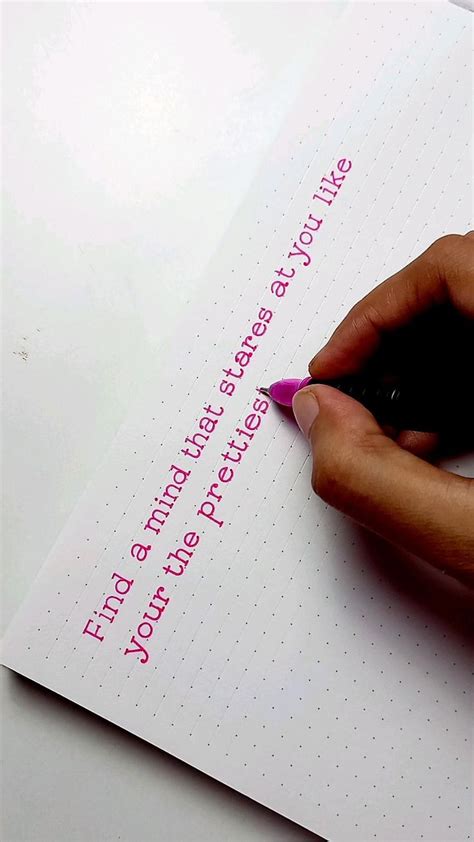 Find a mind that stares at you like
your the pretties